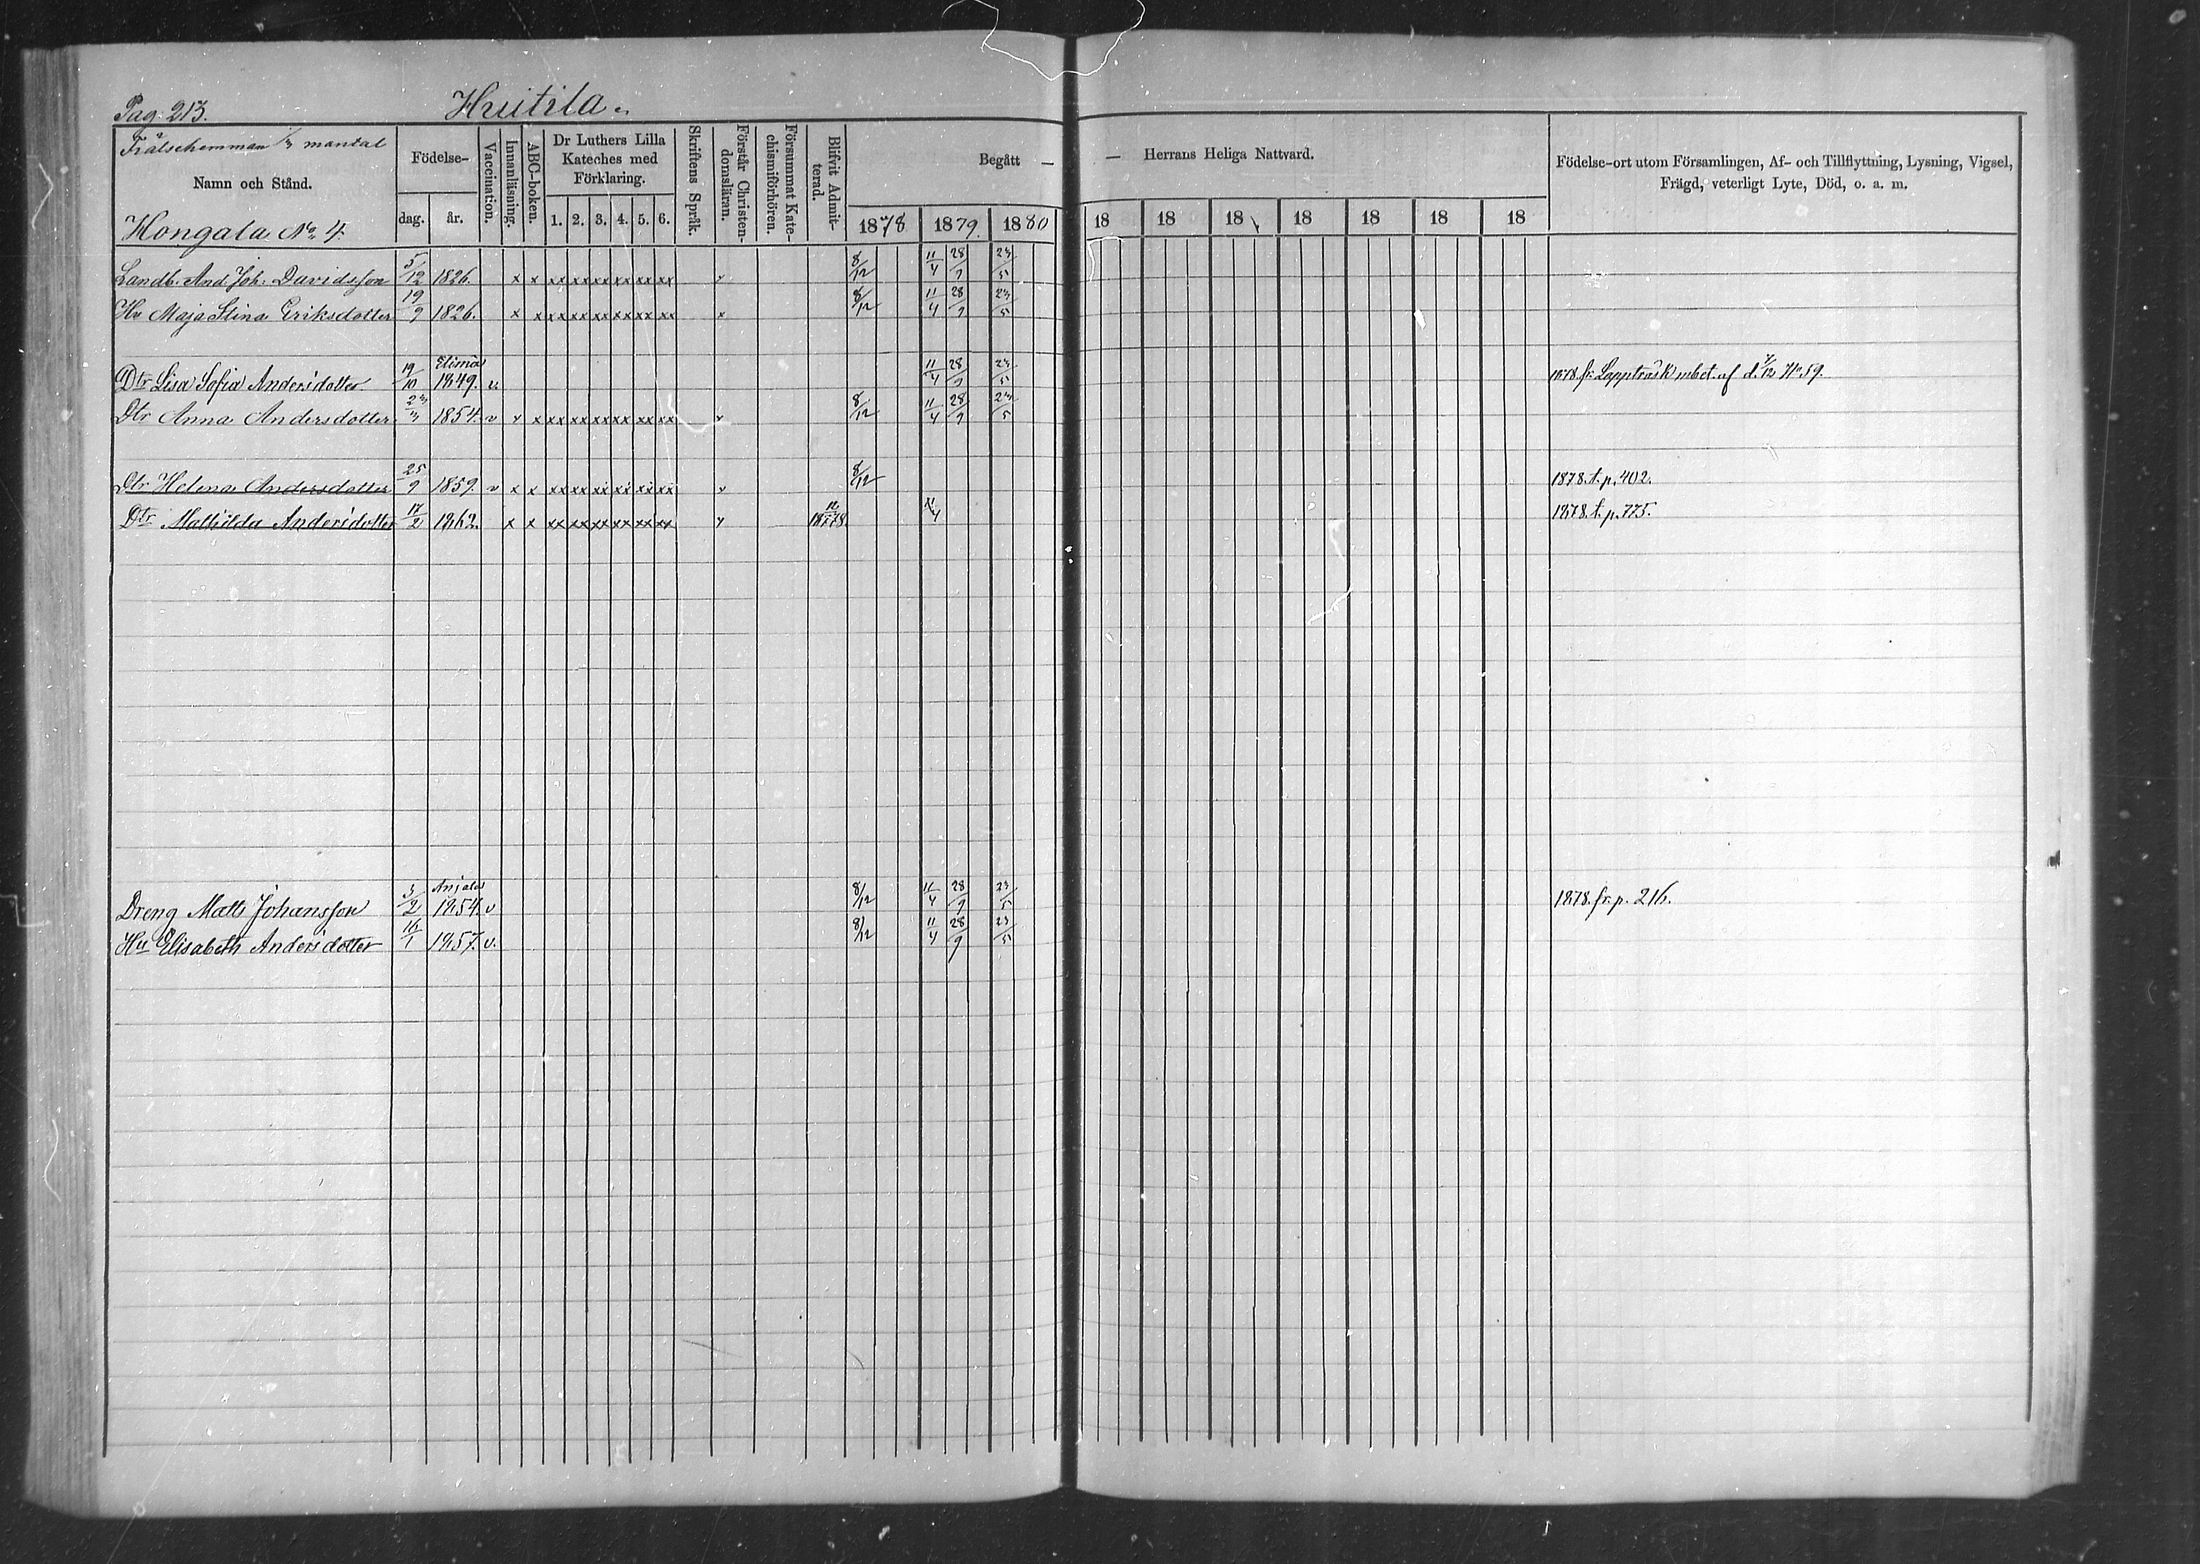 Pag. 213. Huitila.
Frälsehemman mantal
Namn och Stånd.
Hongala No 4.
Födelse-
dag. år.
Vaccination.
Innanläsning.
ABC-boken.
Dr Luthers Lilla
Kateches med
Förklaring.
1. 2. 3. 4. 5. 6.
Skriftens Språk.
Förstår Christen-
domsläran.
Försummat Kate-
chismiförhören.
Blifvit Admit-
terad.
Begått — — Herrans Heliga Nattvard.
1878 1879. 1880 18 18 18 18 18 18 18
Födelse-ort utom Församlingen, Af- och Tillflyttning, Lysning, Vigsel,
Frägd, veterligt Lyte, Död, o. a. m.
Landb. And. Joh. Davidsson 5/12 1826. x x xx xx xx xx xx xx v 8/12 11/4 28/9 23/5
Hu Maja Stina Eriksdotter 19/9 1826. x x xx xx xx xx xx xx x 8/12 11/4 28/9 23/5
Elimä
Dtr Lisa Sofia Andersdotter 19/10 1849. v. 11/4 28/9 23/5 1878. fr. Lappträsk mbet. af d. 7/12 No 59.
Dtr Anna Andersdotter 23/3 1854. v v x xx xx xx xx xx xx v 8/12 11/4 28/9 23/5
Dtr Helena Andersdotter 25/9 1859. v x x xx xx xx xx xx xx v 8/12 1878. t. p. 402.
Dtr Mathilda Andersdotter 17/2 1862. x x xx xx xx xx xx xx v 11/4 1878. t. p. 775.
Anjala
Dreng Matts Johansson 3/2 1854. v 8/12 11/4 28/9 23/5 1878. fr. p. 216.
Hu Elisabeth Andersdotter 16/1 1857. v. 8/12 11/4 28/9 23/5